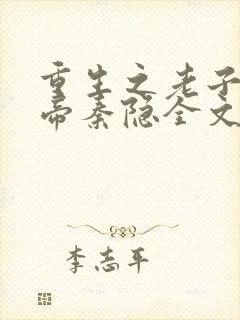 重生之老子
帝秦隐全文
李志平